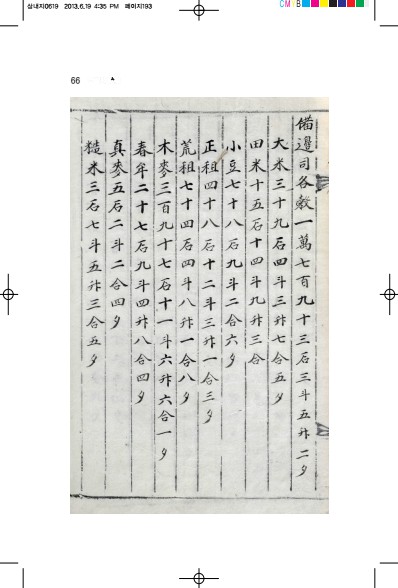 삼내지0619 2013.6.19 4:35 PM 페이지193
CMYB
66 ▲
備邊司各穀一萬七百九十三石三斗五升二夕
大米三十九石四斗三升七合五夕
田米十五石十四斗九升三合
小豆七十八石九斗二合六夕
正租四十八石十二斗三升一合三夕
荒租七十四石四斗八升一合八夕
木麥三百九十七石十一斗六升六合一夕
春牟二十七石九斗四升八合四夕
真麥五石二斗二合四夕
糙米三石七斗五升三合五夕